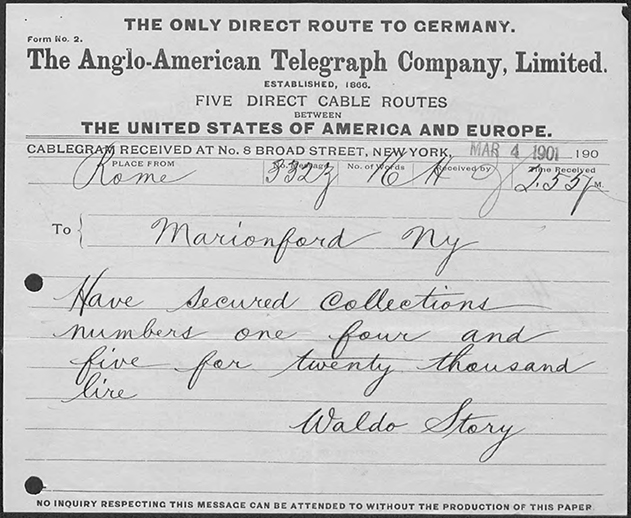 THE ONLY DIRECT ROUTE TO GERMANY.
Form No. 2.
The Anglo-American Telegraph Company, Limited.
ESTABLISHED, 1866.
FIVE DIRECT CABLE ROUTES
BETWEEN
THE UNITED STATES OF AMERICA AND EUROPE.
CABLEGRAM RECEIVED AT No. 8 BROAD STREET, NEW YORK, MAR 4 1901 190
PLACE FROM No. of Words Received by Time Received
Rome 16 2.55 M.
To Marionford Ny
Have secured collections
numbers one four and
five for twenty thousand
lire
Waldo Story
NO INQUIRY RESPECTING THIS MESSAGE CAN BE ATTENDED TO WITHOUT THE PRODUCTION OF THIS PAPER